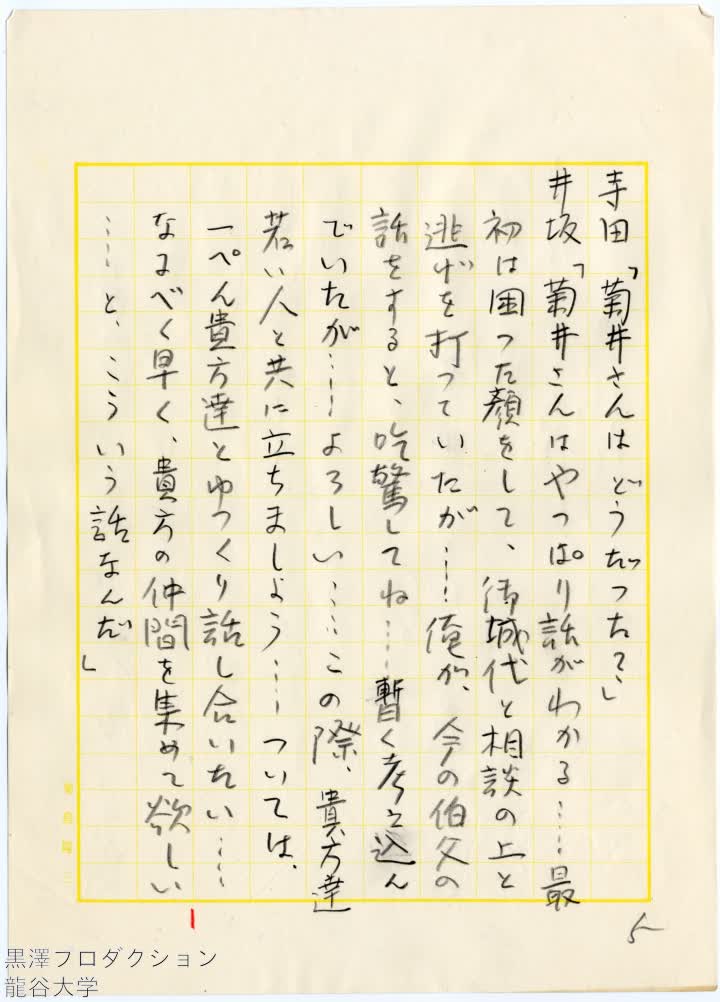 寺田「菊井さんはどうだつた?」
井坂「菊井さんはやつぱり話がわかる……最
初は困つた顔をして、御城代と相談の上と
逃げを打つていたが……俺が、今の伯父の
話をすると、吃驚してね……暫く考え込ん
でいたが……よろしい……この際、貴方達
若い人と共に立ちましよう……ついては、
一ぺん貴方達とゆつくり話し合いたい……
なるべく早く、貴方の仲間を集めて欲しい
……と、こういう話なんだ」
5
黒澤プロダクション
龍谷大学